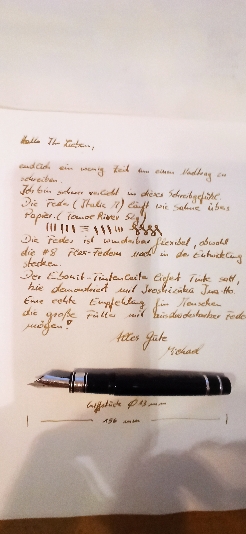 Hallo Ihr Lieben,
endlich ein wenig Zeit um einen Nachtrag zu
schreiben.
Ich bin schon verliebt in dieses Schreibgefühl.
Die Feder ( ) läuft wie Sahne über
Papier. (Tomoe River
Die Feder ist wunderbar flexibel, obwohl
die #8 Flex-Federn noch in der Entwicklung
stecken.
Der Ebonit-Tintenleiter liefert Tinte satt,
hie demonstriert mit Iroshizuku Ina-Ho.
Eine echte Empfehlung für Menschen
die große Füller mit Feder
mögen!
Alles Gute
Michael
Griffstück Ø 13 mm
156 mm